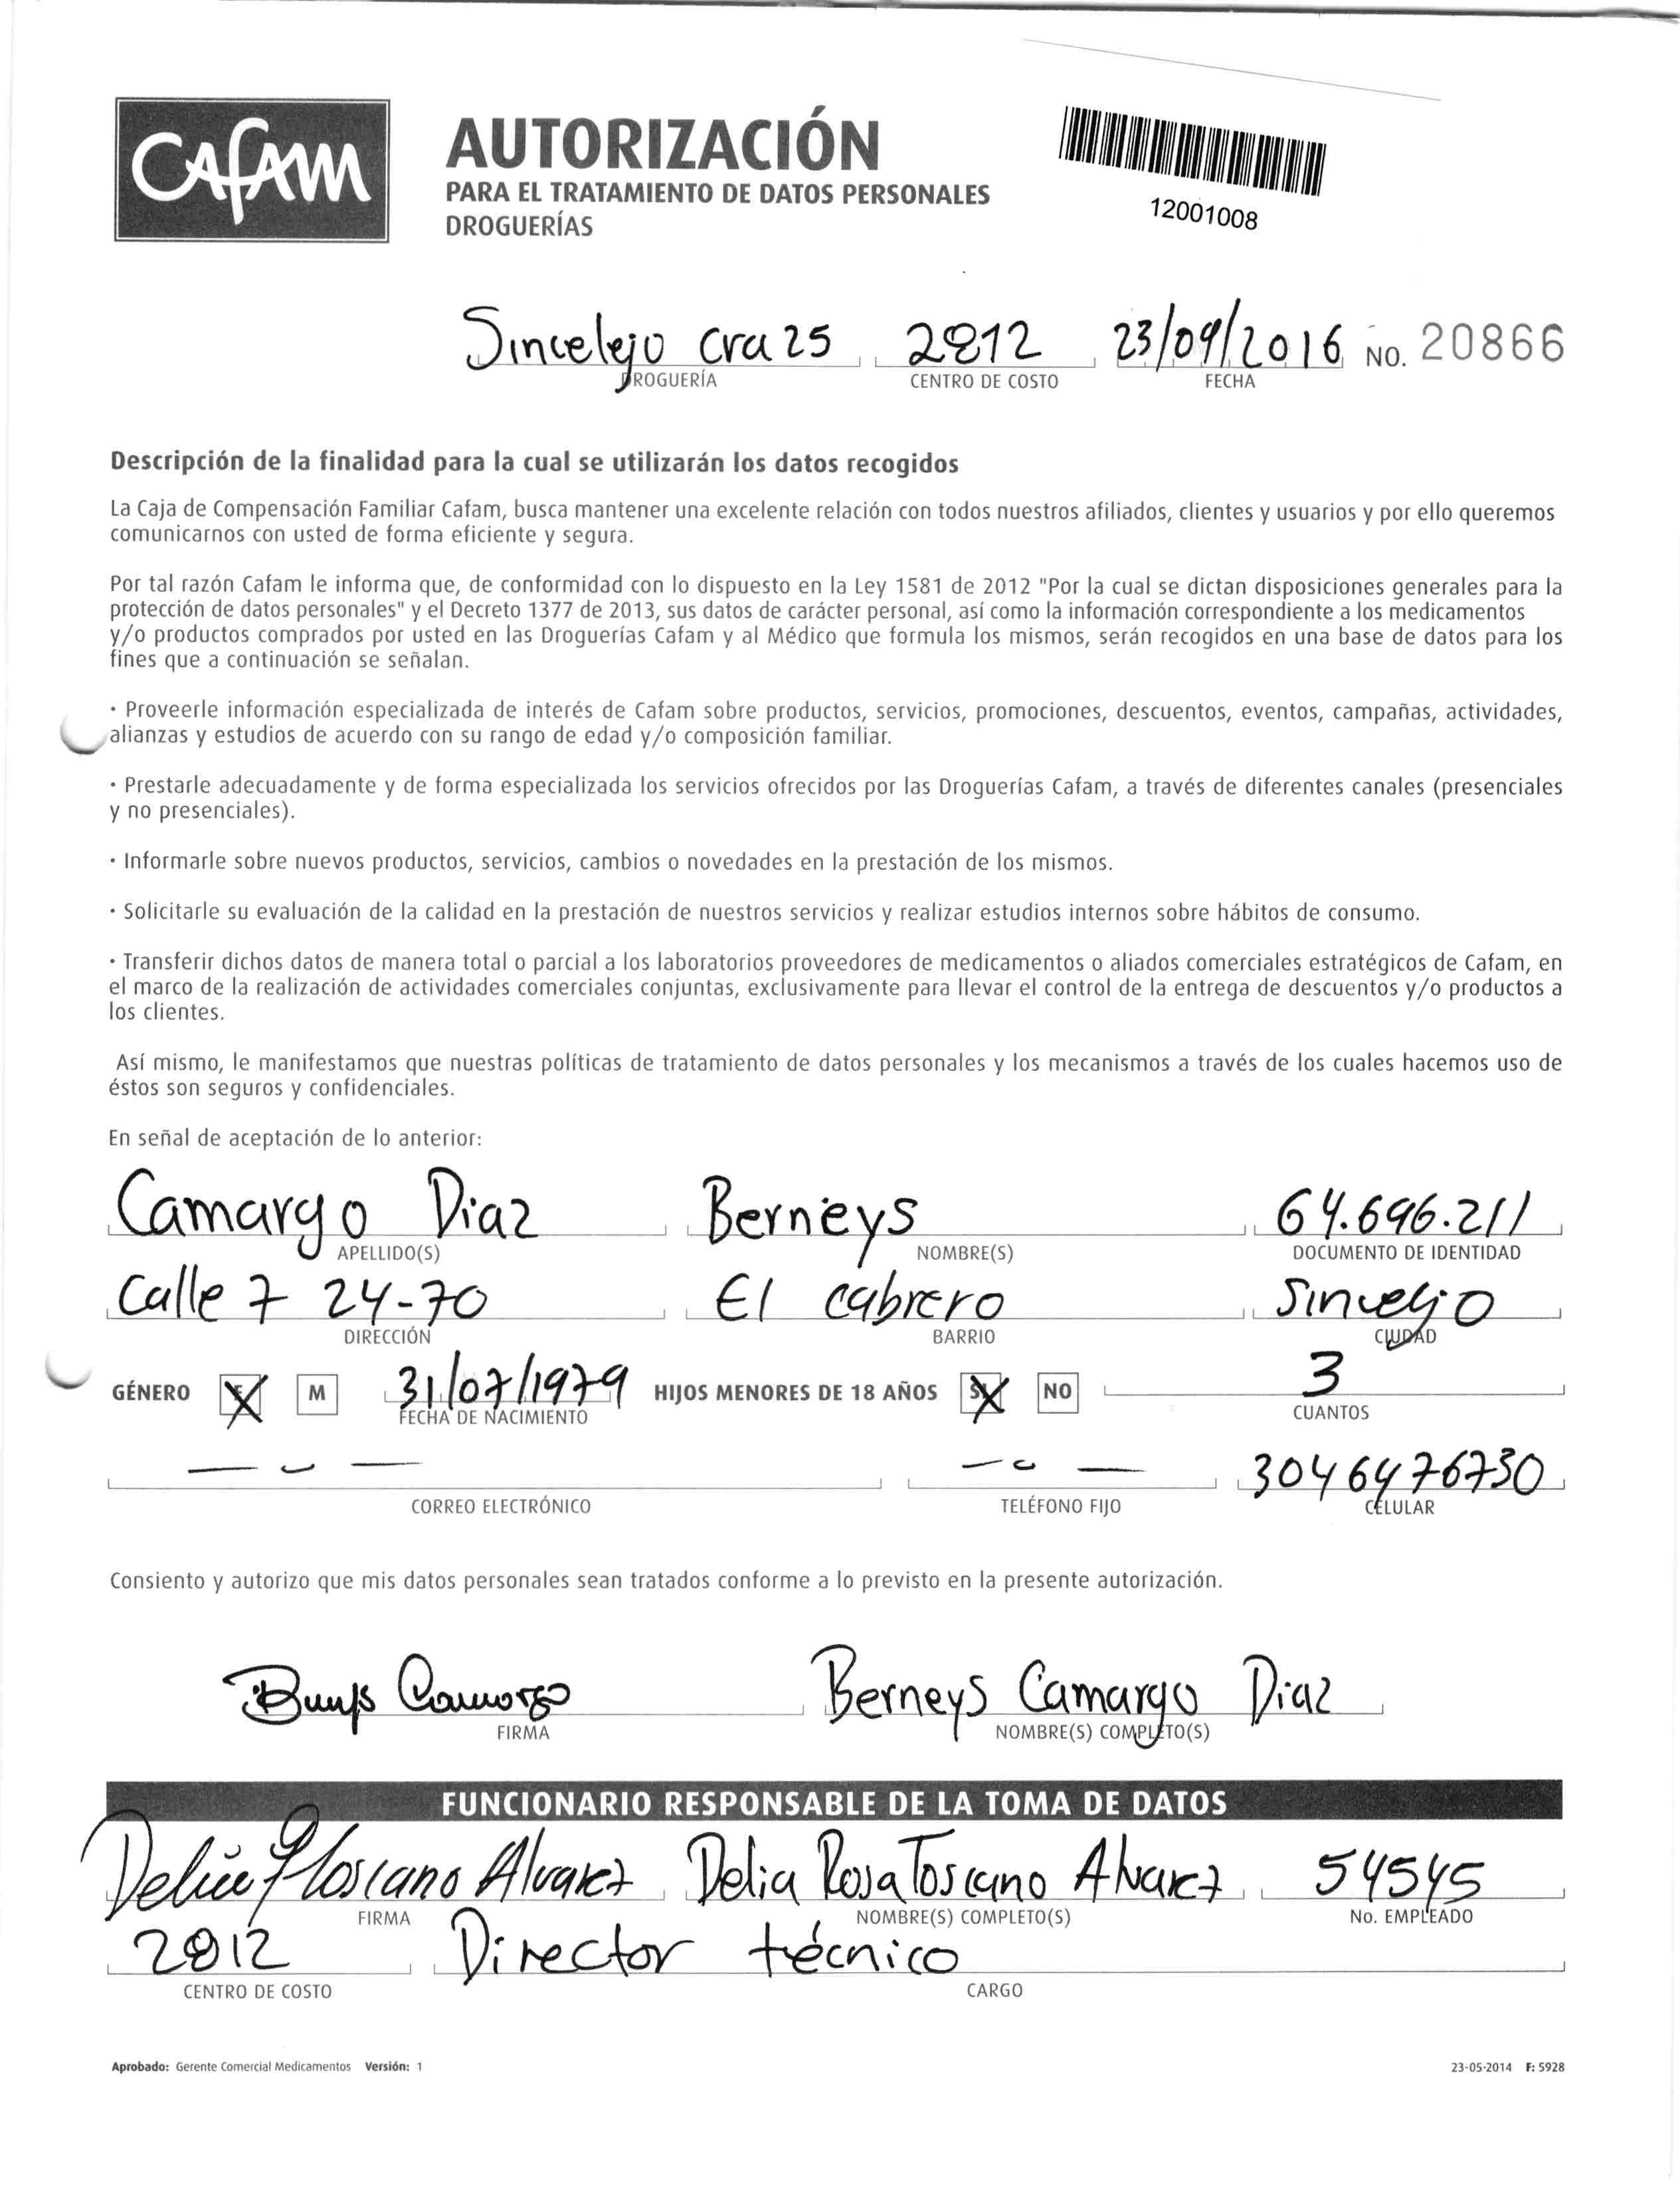 CAFAM
AUTORIZACIÓN
PARA EL TRATAMIENTO DE DATOS PERSONALES
DROGUERÍAS
12001008
Sincelejo cra 25 2812 23/09/2016 No. 20866
DROGUERÍA CENTRO DE COSTO FECHA
Descripción de la finalidad para la cual se utilizarán los datos recogidos
La Caja de Compensación Familiar Cafam, busca mantener una excelente relación con todos nuestros afiliados, clientes y usuarios y por ello queremos
comunicarnos con usted de forma eficiente y segura.
Por tal razón Cafam le informa que, de conformidad con lo dispuesto en la Ley 1581 de 2012 "Por la cual se dictan disposiciones generales para la
protección de datos personales" y el Decreto 1377 de 2013, sus datos de carácter personal, así como la información correspondiente a los medicamentos
y/o productos comprados por usted en las Droguerías Cafam y al Médico que formula los mismos, serán recogidos en una base de datos para los
fines que a continuación se señalan.
· Proveerle información especializada de interés de Cafam sobre productos, servicios, promociones, descuentos, eventos, campañas, actividades,
alianzas y estudios de acuerdo con su rango de edad y/o composición familiar.
· Prestarle adecuadamente y de forma especializada los servicios ofrecidos por las Droguerías Cafam, a través de diferentes canales (presenciales
y no presenciales).
· Informarle sobre nuevos productos, servicios, cambios o novedades en la prestación de los mismos.
· Solicitarle su evaluación de la calidad en la prestación de nuestros servicios y realizar estudios internos sobre hábitos de consumo.
· Transferir dichos datos de manera total o parcial a los laboratorios proveedores de medicamentos o aliados comerciales estratégicos de Cafam, en
el marco de la realización de actividades comerciales conjuntas, exclusivamente para llevar el control de la entrega de descuentos y/o productos a
los clientes.
Así mismo, le manifestamos que nuestras políticas de tratamiento de datos personales y los mecanismos a través de los cuales hacemos uso de
éstos son seguros y confidenciales.
En señal de aceptación de lo anterior:
Camargo Diaz Berneys 64.696.211
APELLIDO(S) NOMBRE(S) DOCUMENTO DE IDENTIDAD
Calle 7 24-70 El cabrero Sincelejo
DIRECCIÓN BARRIO CIUDAD
GÉNERO F M 31/07/1979 HIJOS MENORES DE 18 AÑOS SI NO 3
FECHA DE NACIMIENTO CUANTOS
3046476730
CORREO ELECTRÓNICO TELÉFONO FIJO CELULAR
Consiento y autorizo que mis datos personales sean tratados conforme a lo previsto en la presente autorización.
Camargo Berneys Camargo Diaz
FIRMA NOMBRE(S) COMPLETO(S)
FUNCIONARIO RESPONSABLE DE LA TOMA DE DATOS
Delia Toscano Alvarez Delia Rosa Toscano Alvarez 54545
FIRMA NOMBRE(S) COMPLETO(S) No. EMPLEADO
2812 Director técnico
CENTRO DE COSTO CARGO
Aprobado: Gerente Comercial Medicamentos Versión: 1 23-05-2014 F: 5928